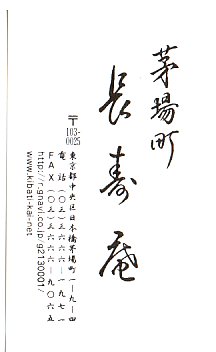 茅場町
長寿庵
〒103-0025
東京都中央区日本橋茅場町一ー九ー四
電話(〇三)三六六六ー一九七一
FAX(〇三)三六六六ー九〇六五
http://r.gnavi.co.jp/g2130001/
www.kibati-kai-net